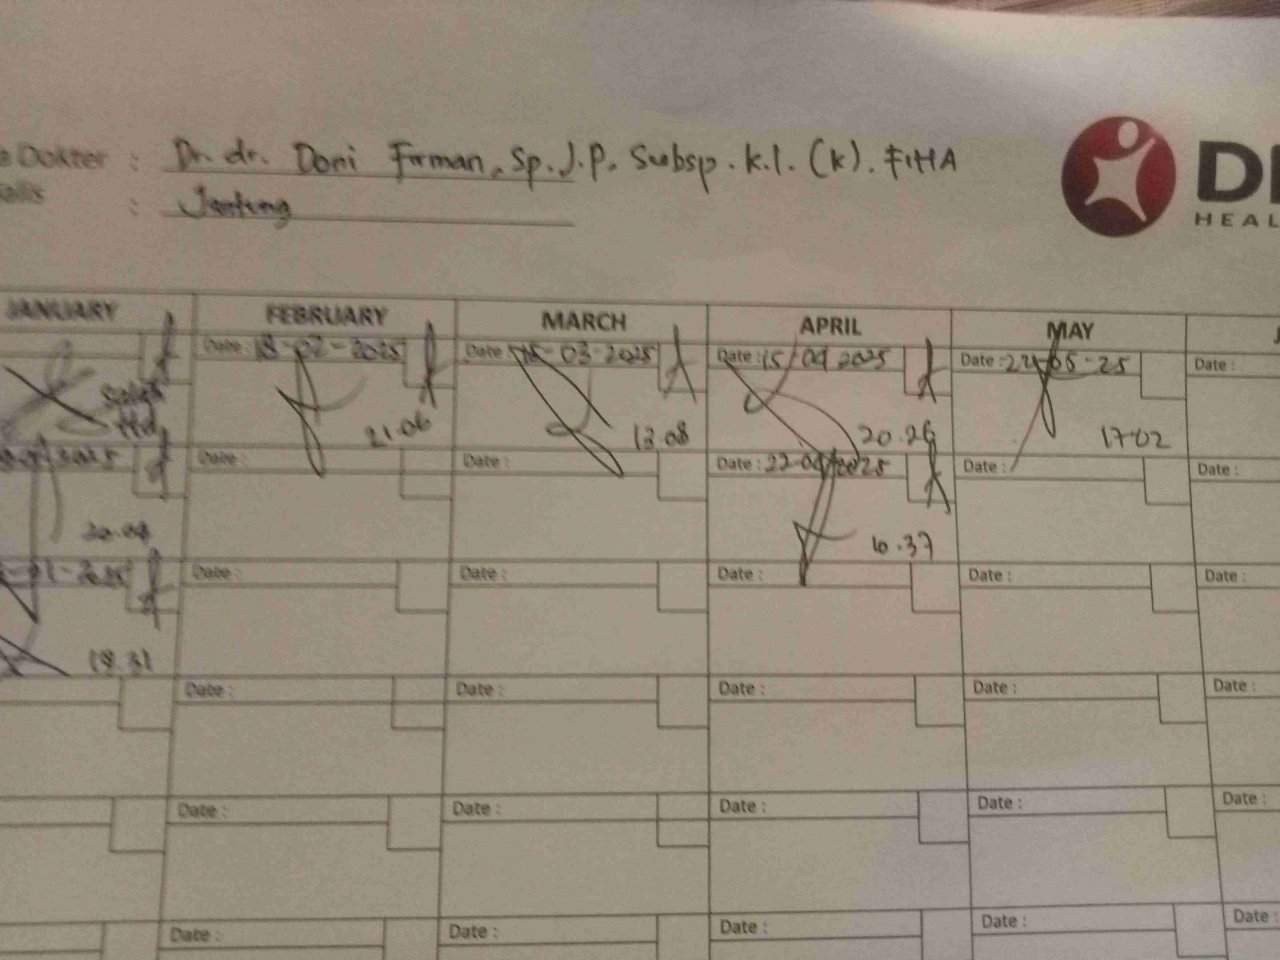 Dokter : Dr. dr. Doni Firman, Sp.J.P. Subsp. k.I. (k). FIHA
: Jantung
HEAL
JANUARY FEBRUARY MARCH APRIL MAY
Date : 18-02-2025 Date : 15-03-2025 Date : 15/04 2025 Date : 22-05-25 Date :
21.06 13.08 20.26 17.02
Date : Date : Date : 22-04/2025 Date : Date :
20.04 16.37
-01-2025 Date : Date : Date : Date : Date :
18.31
Date : Date : Date : Date : Date :
Date : Date : Date : Date : Date :
Date : Date : Date : Date : Date :